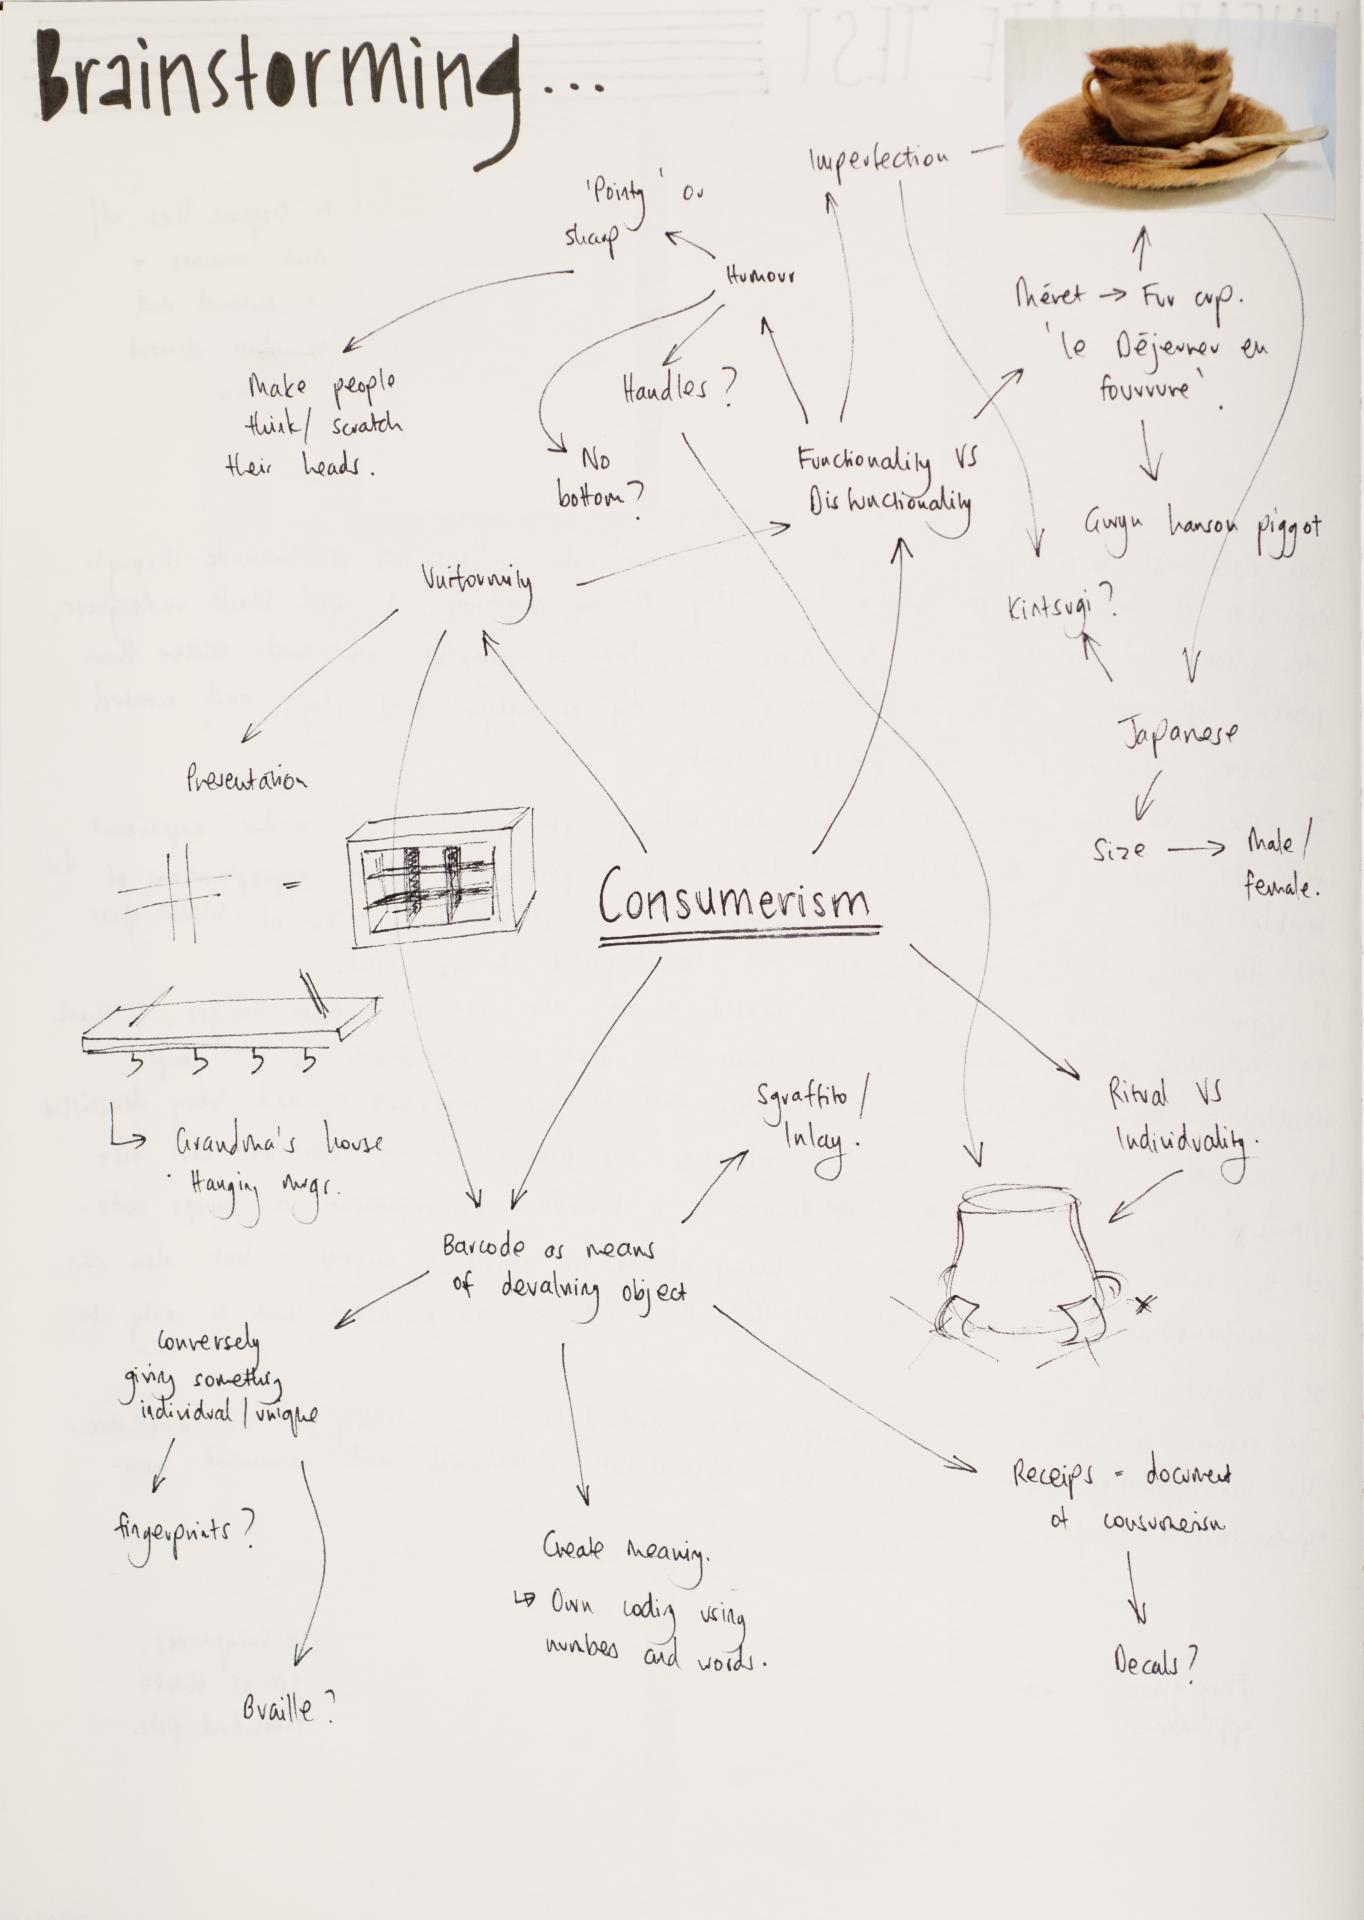 Brainstorming...
Imperfection
'Pointy' or
sharp
Humour
Méret → Fur cup.
'le Déjeuner en
fourrure'.
Make people
think/ scratch
their heads.
Handles?
No
bottom?
Functionality VS
Disfunctionality
Gwyn hanson piggot
Uniformity
Kintsugi?
Japanese
Presentation
Size → Male/
female.
=
Consumerism
Sgraffito/
Inlay.
Ritual VS
Individuality.
Grandma's house
· Hanging mugs.
Barcode as means
of devaluing object
Conversely
giving something
individual/unique
Receips = document
of consumerism
fingerprints?
Create meaning.
↳ Own coding using
numbes and words.
Decals?
Braille?